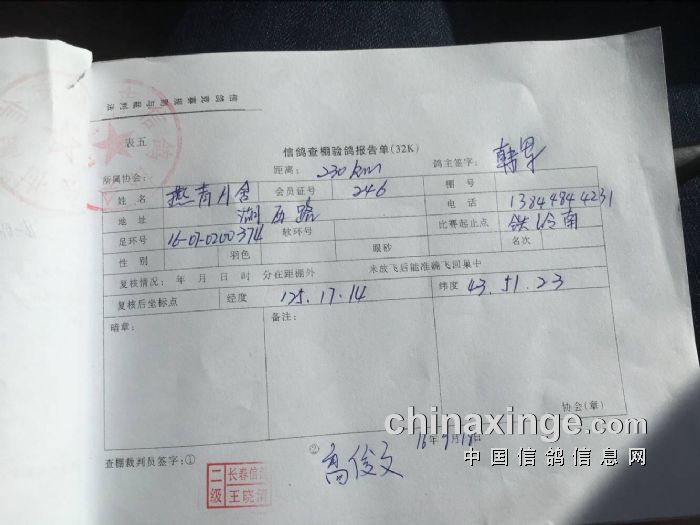 表五
信鸽查棚验鸽报告单(32K)
所属协会: 距离: 230km 鸽主签字:
姓名 燕青月舍 会员证号 246 棚号
地址 湖西路 电话 13844844231
足环号 16-07-0200374 软环号 比赛起止点 铁岭南
性别 羽色 眼砂 名次
复核情况: 年 月 日 时 分在距棚外 米放飞后能准确飞回巢中
复核后坐标点 经度 125.17.14 纬度 43.51.23
暗章: 备注:
协会(章)
16年9月18日
查棚裁判员签字:① ② 高俊文
二级 长春信鸽
王晓
chinaxinge.com
中国信鸽信息网